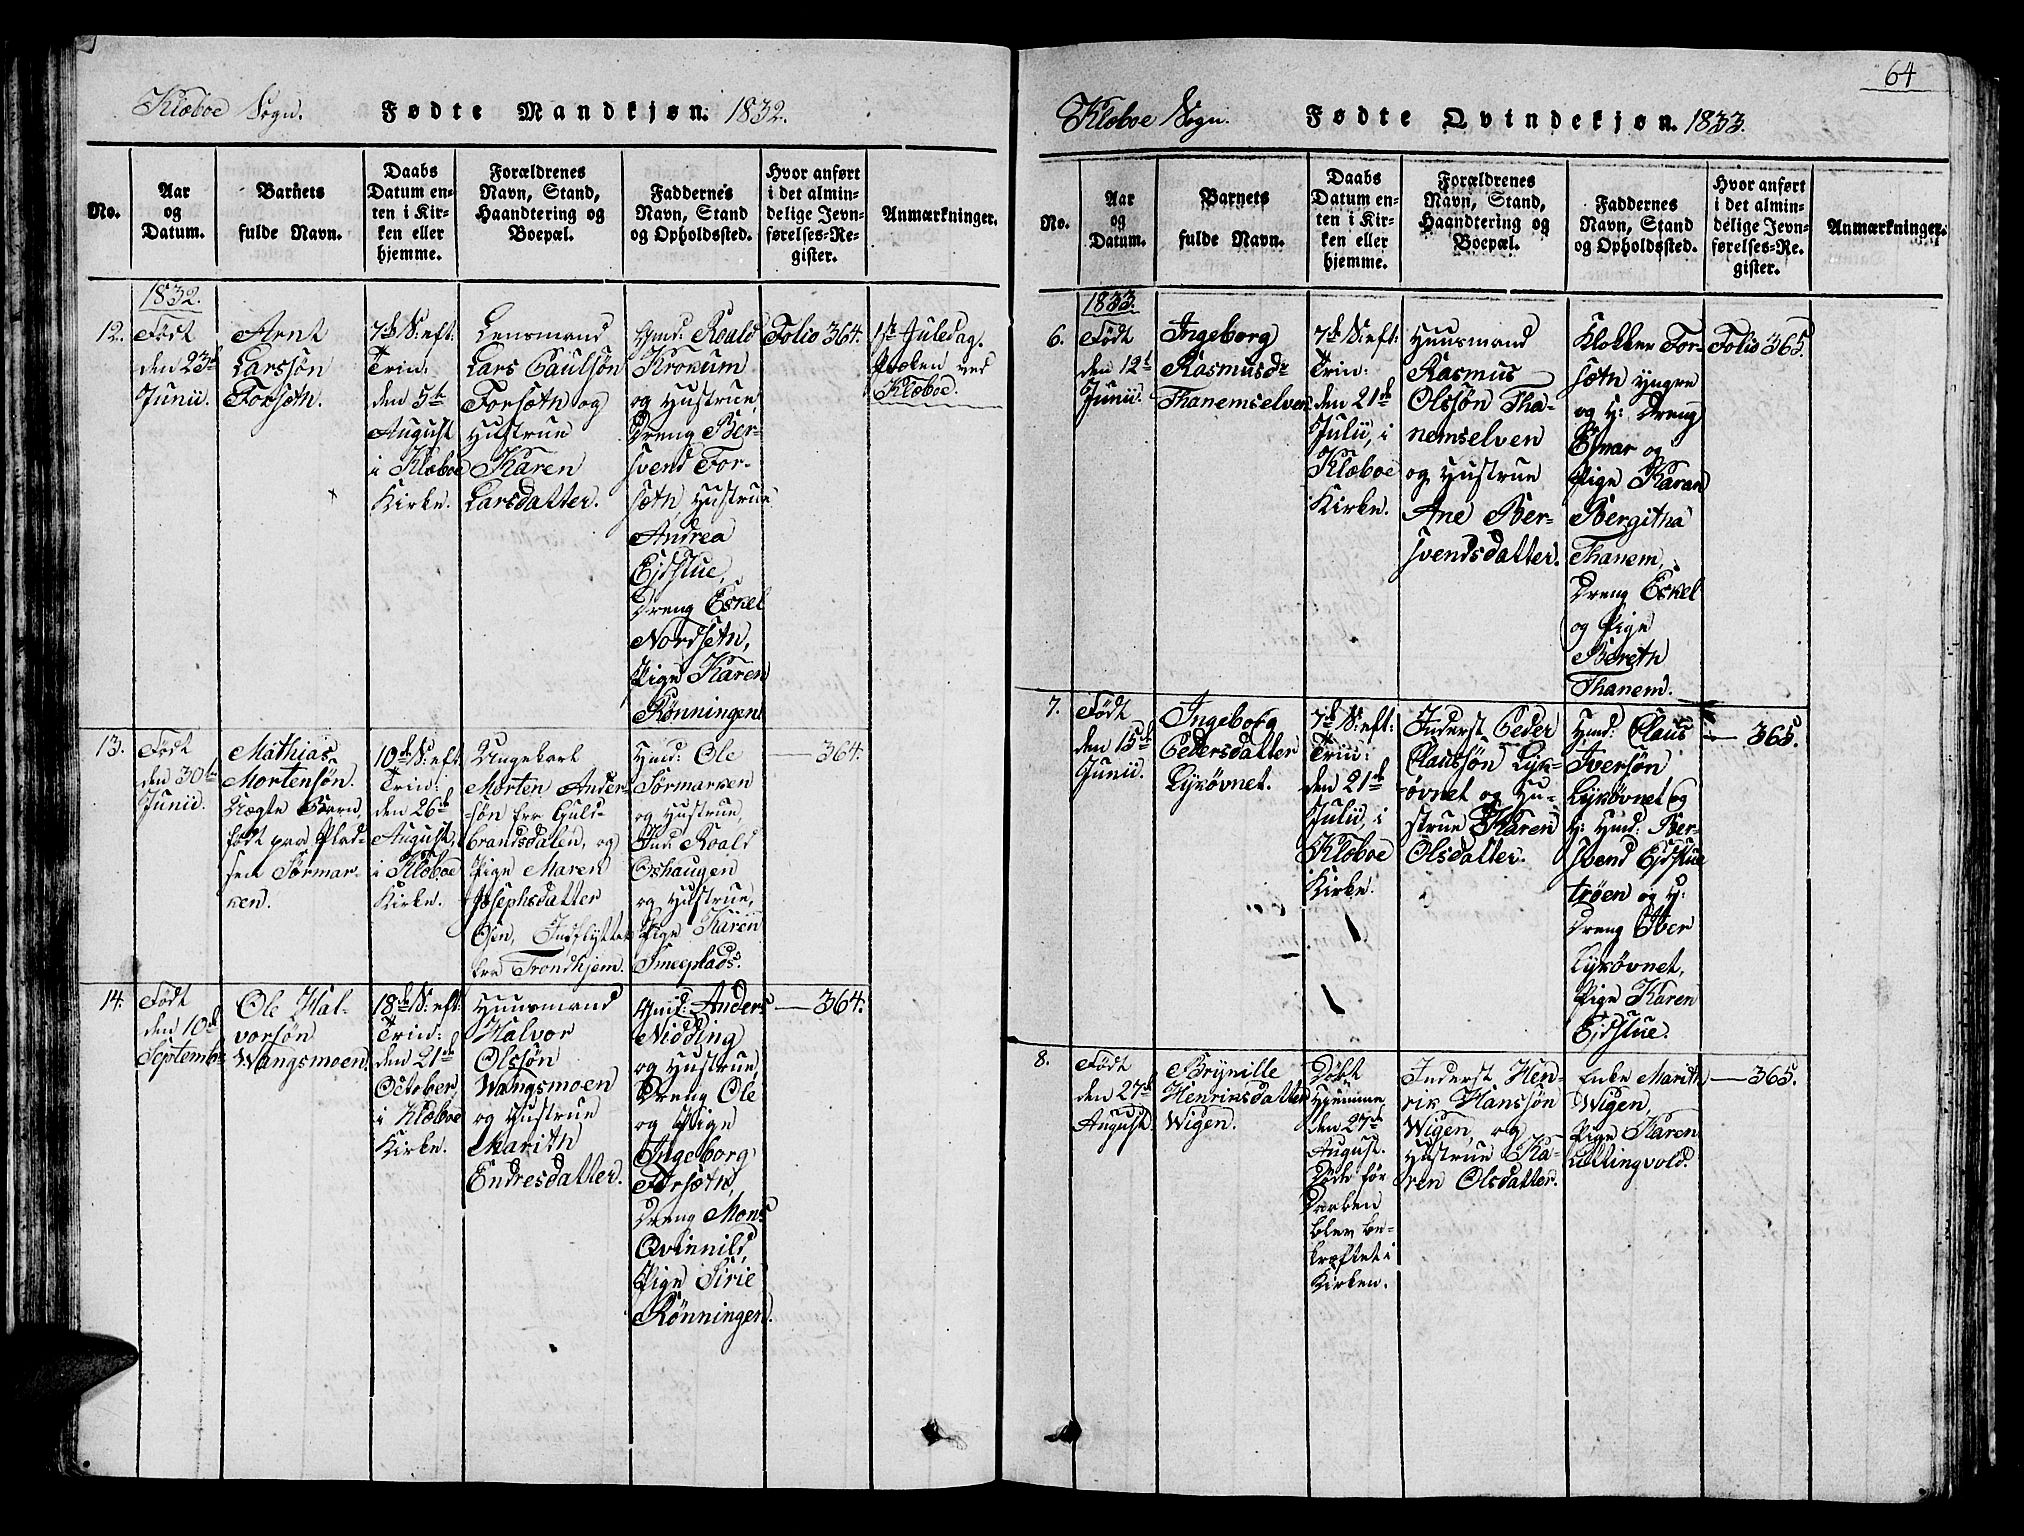 Klæboe Sogn. Fødte Mandkjøn. 1832.
No.
Aar
og
Datum.
Barnets
fulde Navn.
Daabs
Datum en-
ten i Kir-
ken eller
hjemme.
Forældrenes
Navn, Stand,
Haandtering og
Boepæl.
Faddernes
Navn, Stand
og Opholdssted.
Hvor anført
i det almin-
delige Jevn-
førelses-Re-
gister.
Anmærkninger.
1832.
12.
Født
den 23de
Junii.
Arnt
Larssøn
Forsætn.
7de S: eft:
Trin:
den 5te
August
i Klæboe
Kirke.
Lensmand
Lars Paulsøn
Forsætn og
Hustrue
Karen
Larsdatter.
Gmd: Roald
Krokum
og Hustrue,
Dreng Ber-
svend For-
sætn, Hustrue
Andrea
Ejdstue,
Dreng Eskel
Nordsetn,
Pige Karen
Rønningen
Folio 364.
1ste Juledag.
ved
Klæboe.
13.
Født
den 30te
Junii.
Mathias
Mortensøn.
Uægte Barn,
født paa Plad-
sen Sørmar-
ken.
10de S: eft
Trin:
den 26de
August,
i Klæboe
Kirke.
Ungekarl
Morten Ander-
søn fra Guld-
brandsdalen, og
Pige Maren
Josephsdatter
Osen, Indflyttet
fra Trondhjem.
Hmd: Ole
Sørmarken
og Hustrue,
Ind: Roald
Oshaugen
og Hustrue,
Pige Karen
Smeeplads.
— 364.
14.
Født
den 10de
Septembr
Ole Hal-
vorsøn
Wangsmoen.
18de S: eft:
Trin:
den 21de
October,
i Klæboe
Kirke.
Huusmand
Halvor
Olssøn
Wangsmoen
og Hustrue
Marith
Endresdatter.
Gmd: Anders
Nidding
og Hustrue,
Dreng Ole
og Pige
Ingeborg
Forsætn,
Dreng Mons
Qvinnild,
Pige Sirie
Rønningen.
— 364.
64
Klæboe Sogn. Fødte Qvindekjøn. 1833.
No.
Aar
og
Datum.
Barnets
fulde Navn.
Daabs
Datum en-
ten i Kir-
ken eller
hjemme.
Forældrenes
Navn, Stand,
Haandtering og
Boepæl.
Faddernes
Navn, Stand
og Opholdssted.
Hvor anført
i det almin-
delige Jevn-
førelses-Re-
gister.
Anmærkninger.
1833.
6.
Født
den 12te
Junii.
Ingeborg
Rasmusdr
Thanemselven
7de S: eft:
Trin:
den 21de
Julii, i
Klæboe
Kirke.
Huusmand
Rasmus
Olssøn Tha-
nemselven
og Hustrue
Ane Ber-
svendsdatter.
Klokker For-
sætn yngre
og H: Dreng
og
Pige Karen
Bergitha
Thanem,
Dreng Eskel
og Pige
Berethe
Thanem.
Folio 365.
7.
Født
den 15de
Junii.
Ingeborg
Pedersdatter
Lysøvnet.
7de S: eft:
Trin:
den 21de
Julii, i
Klæboe
Kirke.
Inderst Peder
Claussøn Lys-
øvnet og Hu-
strue Karen
Olsdatter.
Hmd: Claus
Iversøn
Lysøvnet og
H: Hmd: Ber-
svend Ejdstue
trøen og H:
Dreng Iver
Lysøvnet,
Pige Karen
Ejdstue.
— 365.
8.
Født
den 27de
August.
Brynille
Henriksdatter
Wigen.
Døbt
Hjemme
den 27de
August.
Døde før
Daaben
blev be-
kræftet i
Kirken.
Inderst Hen-
rik Hanssøn
Wigen, og
Hustrue Ka-
ren Olsdatter.
Enke Marith
Wigen,
Pige Karen
Lillingvold.
— 365.